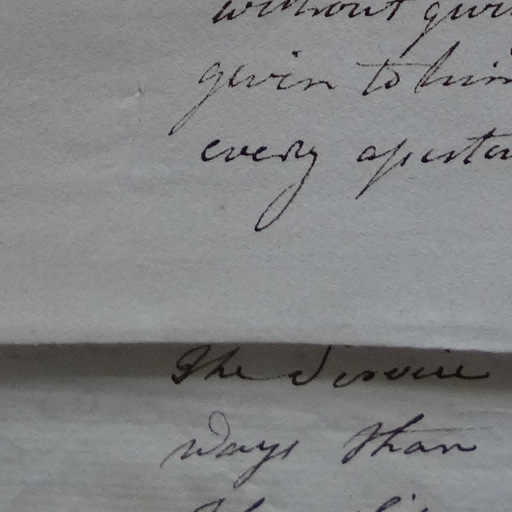 without givi
given to him
every assistan
The Service
ways than